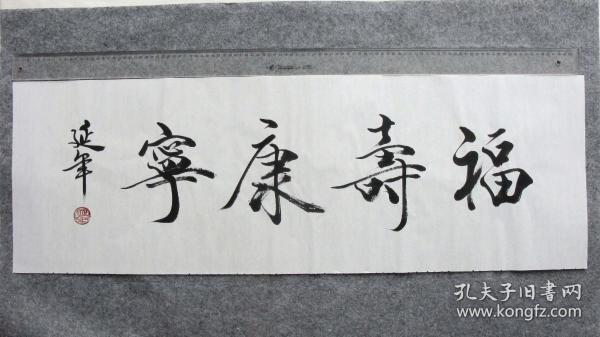 福壽康寧
延年
孔夫子旧書网
www.kongfz.com